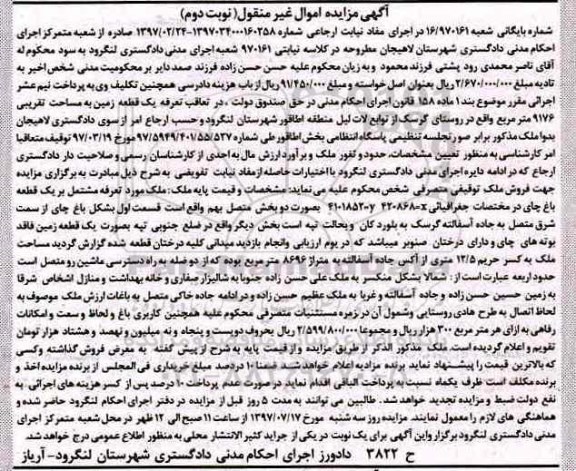 آگهی مزایده اموال غیر منقول (نوبت دوم)
شماره بایگانی شعبه ۱۶/۹۷۰۱۶۱ در اجرای مفاد نیابت ارجاعی شماره ۱۳۹۷۰۳۴۰۰۰۱۶۰۲۵۸-۱۳۹۷/۰۲/۲۴ صادره از شعبه متمرکز اجرای
احکام مدنی دادگستری شهرستان لاهیجان مطروحه در کلاسه نیابتی ۹۷۰۱۶۱ شعبه اجرای مدنی دادگستری لنگرود به سود محکوم له
آقای ناصر محمدی رود پشتی فرزند محمود و به زیان محکوم علیه حسن حسن زاده فرزند صمد دایر بر محکومیت مدنی شخص اخیر به
تادیه مبلغ ۲/۶۷۰/۰۰۰/۰۰۰ ریال بعنوان اصل خواسته و مبلغ ۹۱/۴۵۰/۰۰۰ ریال از باب هزینه دادرسی همچنین تکلیف وی به پرداخت نیم عشر
اجرائی مقرر موضوع بند ۱ ماده ۱۵۸ قانون اجرای احکام مدنی در حق صندوق دولت ، در تعاقب تعرفه یک قطعه زمین به مساحت تقریبی
۹۱۷۶ متر مربع واقع در روستای گرسک از توابع لات لیل منطقه اطاقور شهرستان لنگرود و حسب ارجاع امر از سوی دادگستری لاهیجان
بدوا ملک مذکور برابر صورتجلسه تنظیمی پاسگاه انتظامی بخش اطاقور طی شماره ۹۷/۵۹۴۹/۴۰۱/۵۵/۵۳۷ مورخ ۹۷/۰۳/۱۹ توقیف متعاقبا
امر کارشناسی به منظور تعیین مشخصات، حدود و ثغور ملک و برآورد ارزش مال به احدی از کارشناسان رسمی و صلاحیت دار دادگستری
ارجاع که در ادامه دایره اجرای مدنی دادگستری لنگرود با اختیارات حاصله از مفاد نیابت تفویضی به شرح ذیل مبادرت به برگزاری مزایده
جهت فروش ملک توقیفی متصرفی شخص محکوم علیه می نماید: مشخصات و قیمت پایه ملک: ملک مورد تعرفه مشتمل بر یک قطعه
باغ چای در مختصات جغرافیائی x=۴۲۰۸۶۸ y=۴۱۰۱۸۵۲ بصورت دو بخش متصل بهم واقع است قسمت اول بشکل باغ چای از سمت
شرق متصل به جاده آسفالته گرسک به بلورد کان و بحالت تپه است بخش دیگر واقع در ضلع جنوبی تپه بصورت یک قطعه زمین فاقد
بوته های چای و دارای درختان صنوبر میباشد که در یوم ارزیابی وانجام بازدید میدانی کلیه درختان قطعه شده گزارش گردید مساحت
ملک به کسر حریم ۱۲/۵ متری از آکس جاده آسفالته به متراژ ۸۶۹۶ متر مربع بوده که از دو ضلع به راه دسترسی ماشین رو متصل است
حدود اربعه عبارت است از: شمالا بشکل منکسر به ملک علی حسن زاده جنوبا به شالیزار جیفاری و خانه بهداشت و منازل اشخاص شرقا
به زمین حسین حسن زاده و جاده آسفالته و غربا به ملک عظیم حسن زاده و در ادامه جاده خاکی متصل به باغات ارزش ملک موصوف به
لحاظ اتصال به طرح هادی روستایی وشمول آن در زمره مستثنیات متصرفی محکوم علیه همچنین کاربری باغ و لحاظ و سعت و امکانات
رفاهی به ازای هر متر مربع ۳۰۰ هزار ریال و مجموعا ۲/۵۹۹/۸۰۰/۰۰۰ ریال بحروف دویست و پنجاه و نه میلیون و نهصد و هشتاد هزار تومان
تقویم و اعلام گردیده است. ملک مذکور الذکر از طریق مزایده و از قیمت پایه به شرح از پیش گفته به معرض فروش گذاشته وکسی
که بالاترین قیمت را پیشنهاد نماید برنده مزایده اعلام خواهد شد. بدوا ۱۰ درصد مبلغ خریداری فی المجلس از برنده مزایده اخذ و
برنده مکلف است ظرف یکماه نسبت به پرداخت الباقی اقدام نماید در صورت عدم پرداخت ۱۰ درصد پس از کسر هزینه های اجرائی به
نفع دولت ضبط و مزایده تجدید خواهد شد. طالبین می توانند به مدت ۵ روز قبل از مزایده در دفتر اجرای احکام لنگرود حاضر شده و
هماهنگی های لازم را معمول نمایند. مزایده روز سه شنبه مورخ ۱۳۹۷/۰۷/۱۷ از ساعت ۱۱ صبح الی ۱۲ ظهر در محل شعبه متمرکز اجرای
مدنی دادگستری لنگرود برگزار واین آگهی برای یک نوبت در یکی از جراید کثیر الانتشار محلی به منظور اطلاع عمومی درج خواهد شد.
ح ۳۸۲۲ دادورز اجرای احکام مدنی دادگستری شهرستان لنگرود- آریاز